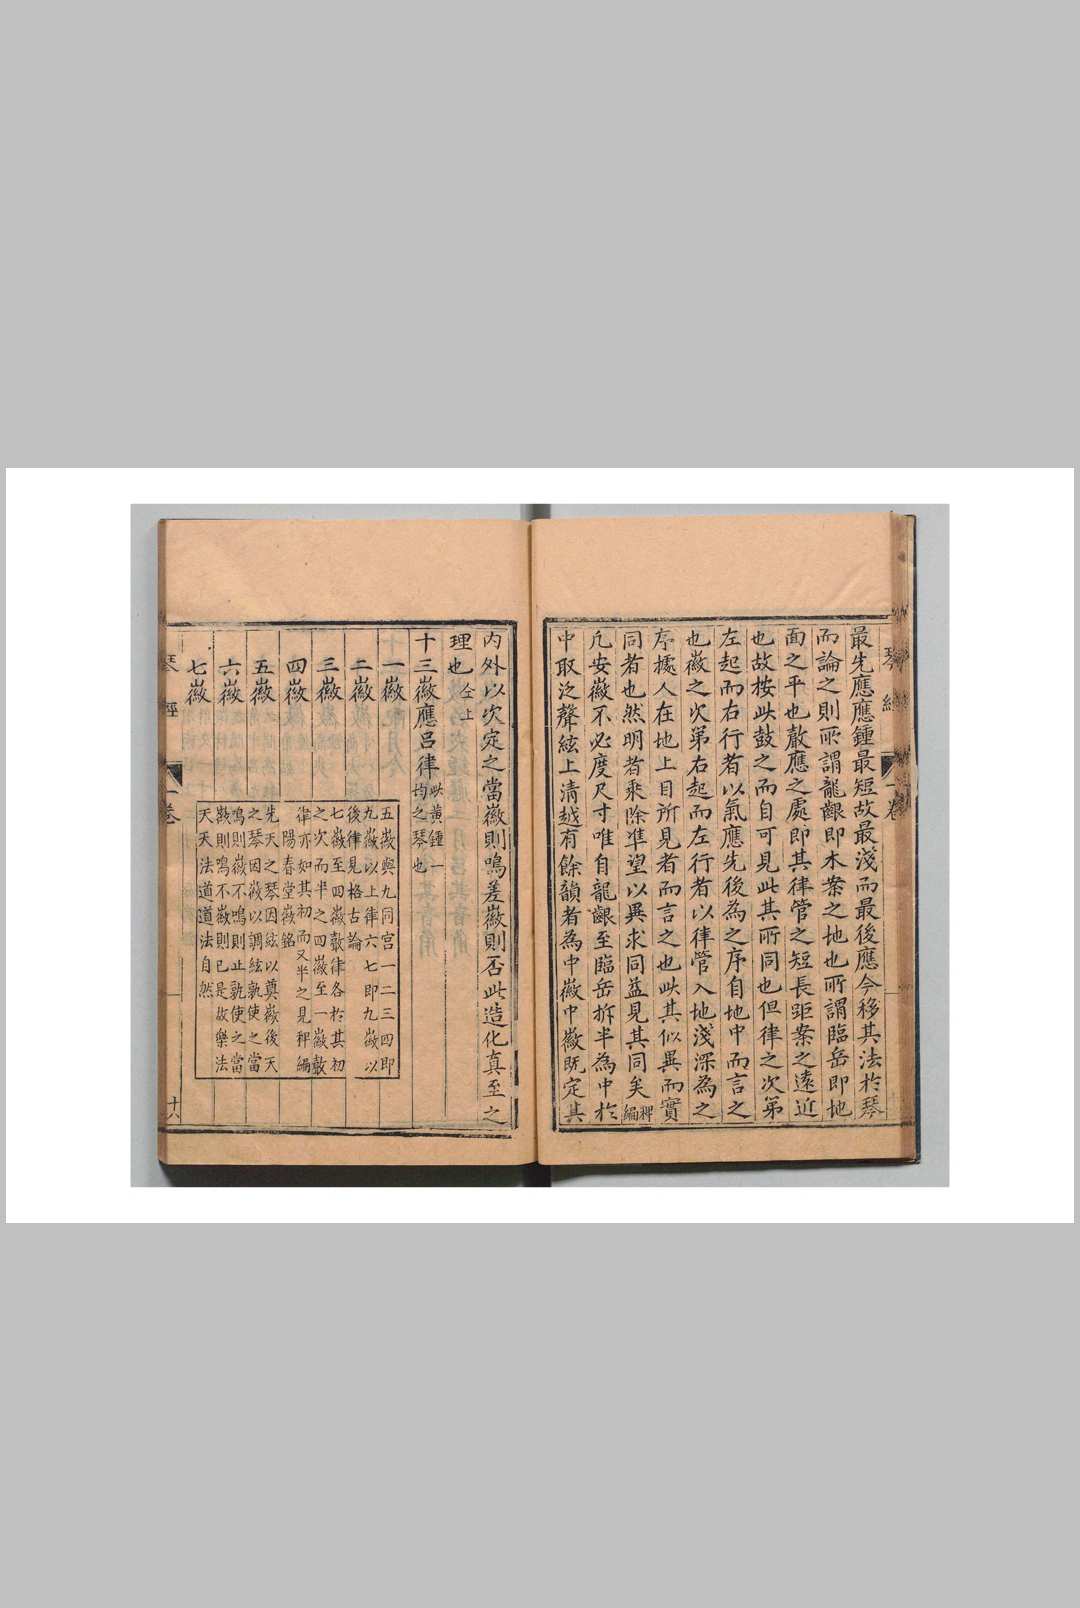 最先應應鍾最短故最淺而最後應今移其法於琴
而論之則所謂龍齦即木案之地也所謂臨岳即地
面之平也𣪊應之處即其律管之短長距案之遠近
也故按此鼓之而自可見此其所同也但律之次第
左起而右行者以氣應先後為之序自地中而言之
也徽之次第右起而左行者以律管入地淺深為之
序據人在地上目所見者而言之也此其似異而實
同者也然明者乘除準望以異求同益見其同矣稗編
凡安徽不必度尺寸唯自龍齦至臨岳拆半為中於
中取泛聲絃上清越有餘韻者為中徽中徽既定其
琴經 一卷
內外以次定之當徽則鳴差徽則否此造化真至之
理也仝上
十三徽應呂律此黃鍾一均之琴也
一徽
二徽
三徽
四徽
五徽
六徽
七徽
五徽與九同宮一二三四即
九徽以上律六七即九徽以
後律見格古論
七徽至四徽𣪊律各於其初
之次而半之四徽至一徽𣪊
律亦如其初而又半之見稗編
陽春堂徽銘
先天之琴因絃以奠徽後天
之琴因徽以調絃孰使之當
鳴則徽不鳴則止孰使之當
徽則鳴不徽則已是故樂法
天天法道道法自然
琴經 一卷 十六